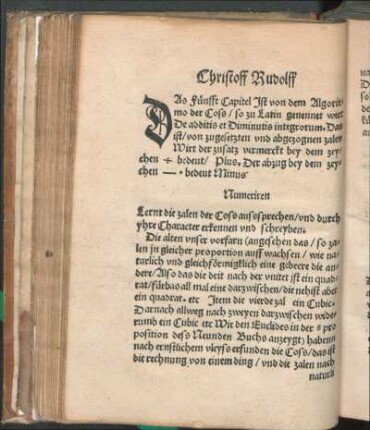 Christoff Rudolff
DAs Fünfft Capitel Ist von dem Algorit-
mo der Coss / so zu Latin genennet wirt
De additis et Diminutis integrorum. Das
ist / von zugesetzten und abgezognen zalen
Wirt der zusatz vermerckt bey dem zey-
chen + bedeut / Plus. Der abzug bey dem zey-
chen — · bedeut Minus
Numeriren
Lernt die zalen der Coss aussprechen / vnd durch
yhre Character erkennen vnd schreyben.
Die alten vnser vorfarn (angesehen das / so za-
len jn gleicher proportion auff wachsen / wie na-
turlich vnd gleichförmigklich eine gebeere die an-
dere / Also das die drit nach der vnitet ist ein quad-
rat / fürbas all mal eine darzwischen / die nehist aber
ein quadrat. etc Item die vierde zal ein Cubic.
Darnach allweg nach zweyen darzwischen wide-
rumb ein Cubic etc Wie den Euclides in der 8 pro
position dess Neunden Buchs anzeygt) habenn
nach ernstlichem vleyss erfunden die Coss / das ist
die rechnung von einem ding / vnd die zalen nach
naturli